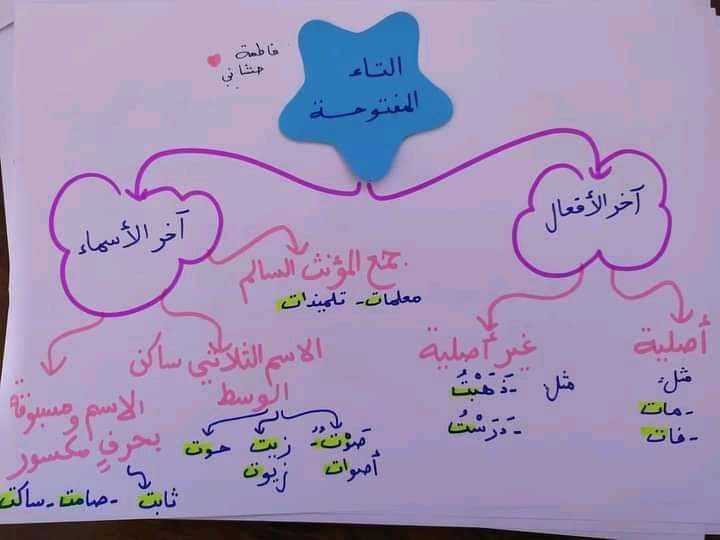 فاطمة
حشاني
التاء
المفتوحة
آخر الأفعال
أصلية
مثل:
- مات
- فات
غير أصلية
مثل: - ذَهَبْتُ
- دَرَسْتُ
آخر الأسماء
جمع المؤنث السالم
معلمات - تلميذات
الاسم الثلاثي ساكن
الوسط
صَوْتٌ زيت حوت
أصوات زيوت
الاسم ومسبوقة
بحرفٍ مكسور
ثابت - صامت - ساكت